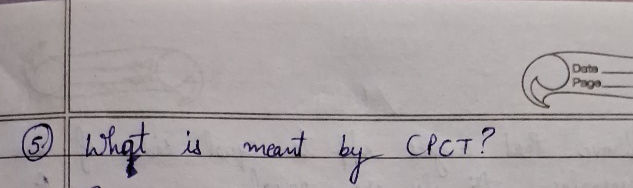 Date
Page
5. What is meant by CPCT?